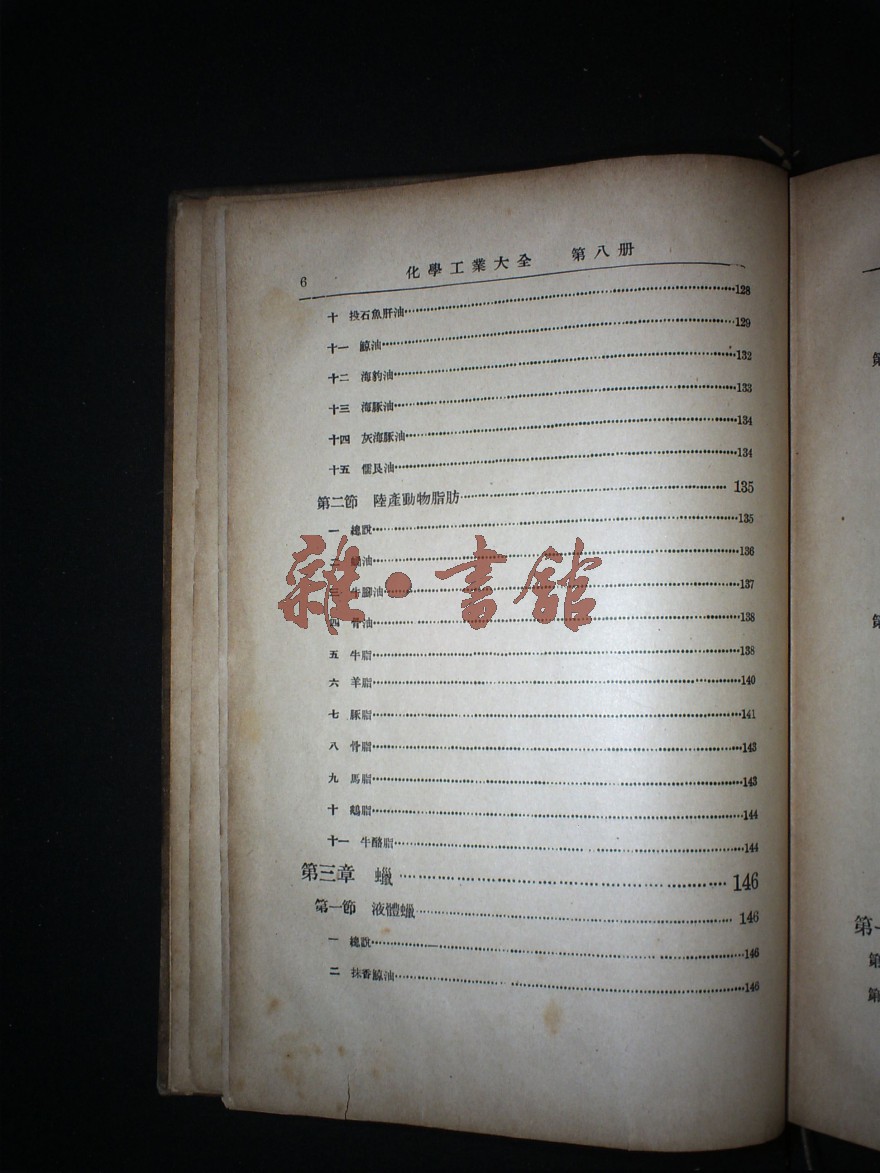 6 化學工業大全 第八册
十 投石魚肝油 128
十一 鯨油 129
十二 海豹油 132
十三 海豚油 133
十四 灰海豚油 134
十五 儒艮油 134
第二節 陸產動物脂肪 135
一 總說 135
二 油 136
三 牛腳油 137
四 骨油 138
五 牛脂 138
六 羊脂 140
七 豚脂 141
八 骨脂 143
九 馬脂 143
十 脂 144
十一 牛酪脂 144
第三章 蠟 146
第一節 液體蠟 146
一 總說 146
二 抹香鯨油 146
雜·書館
第
第
第
第
第